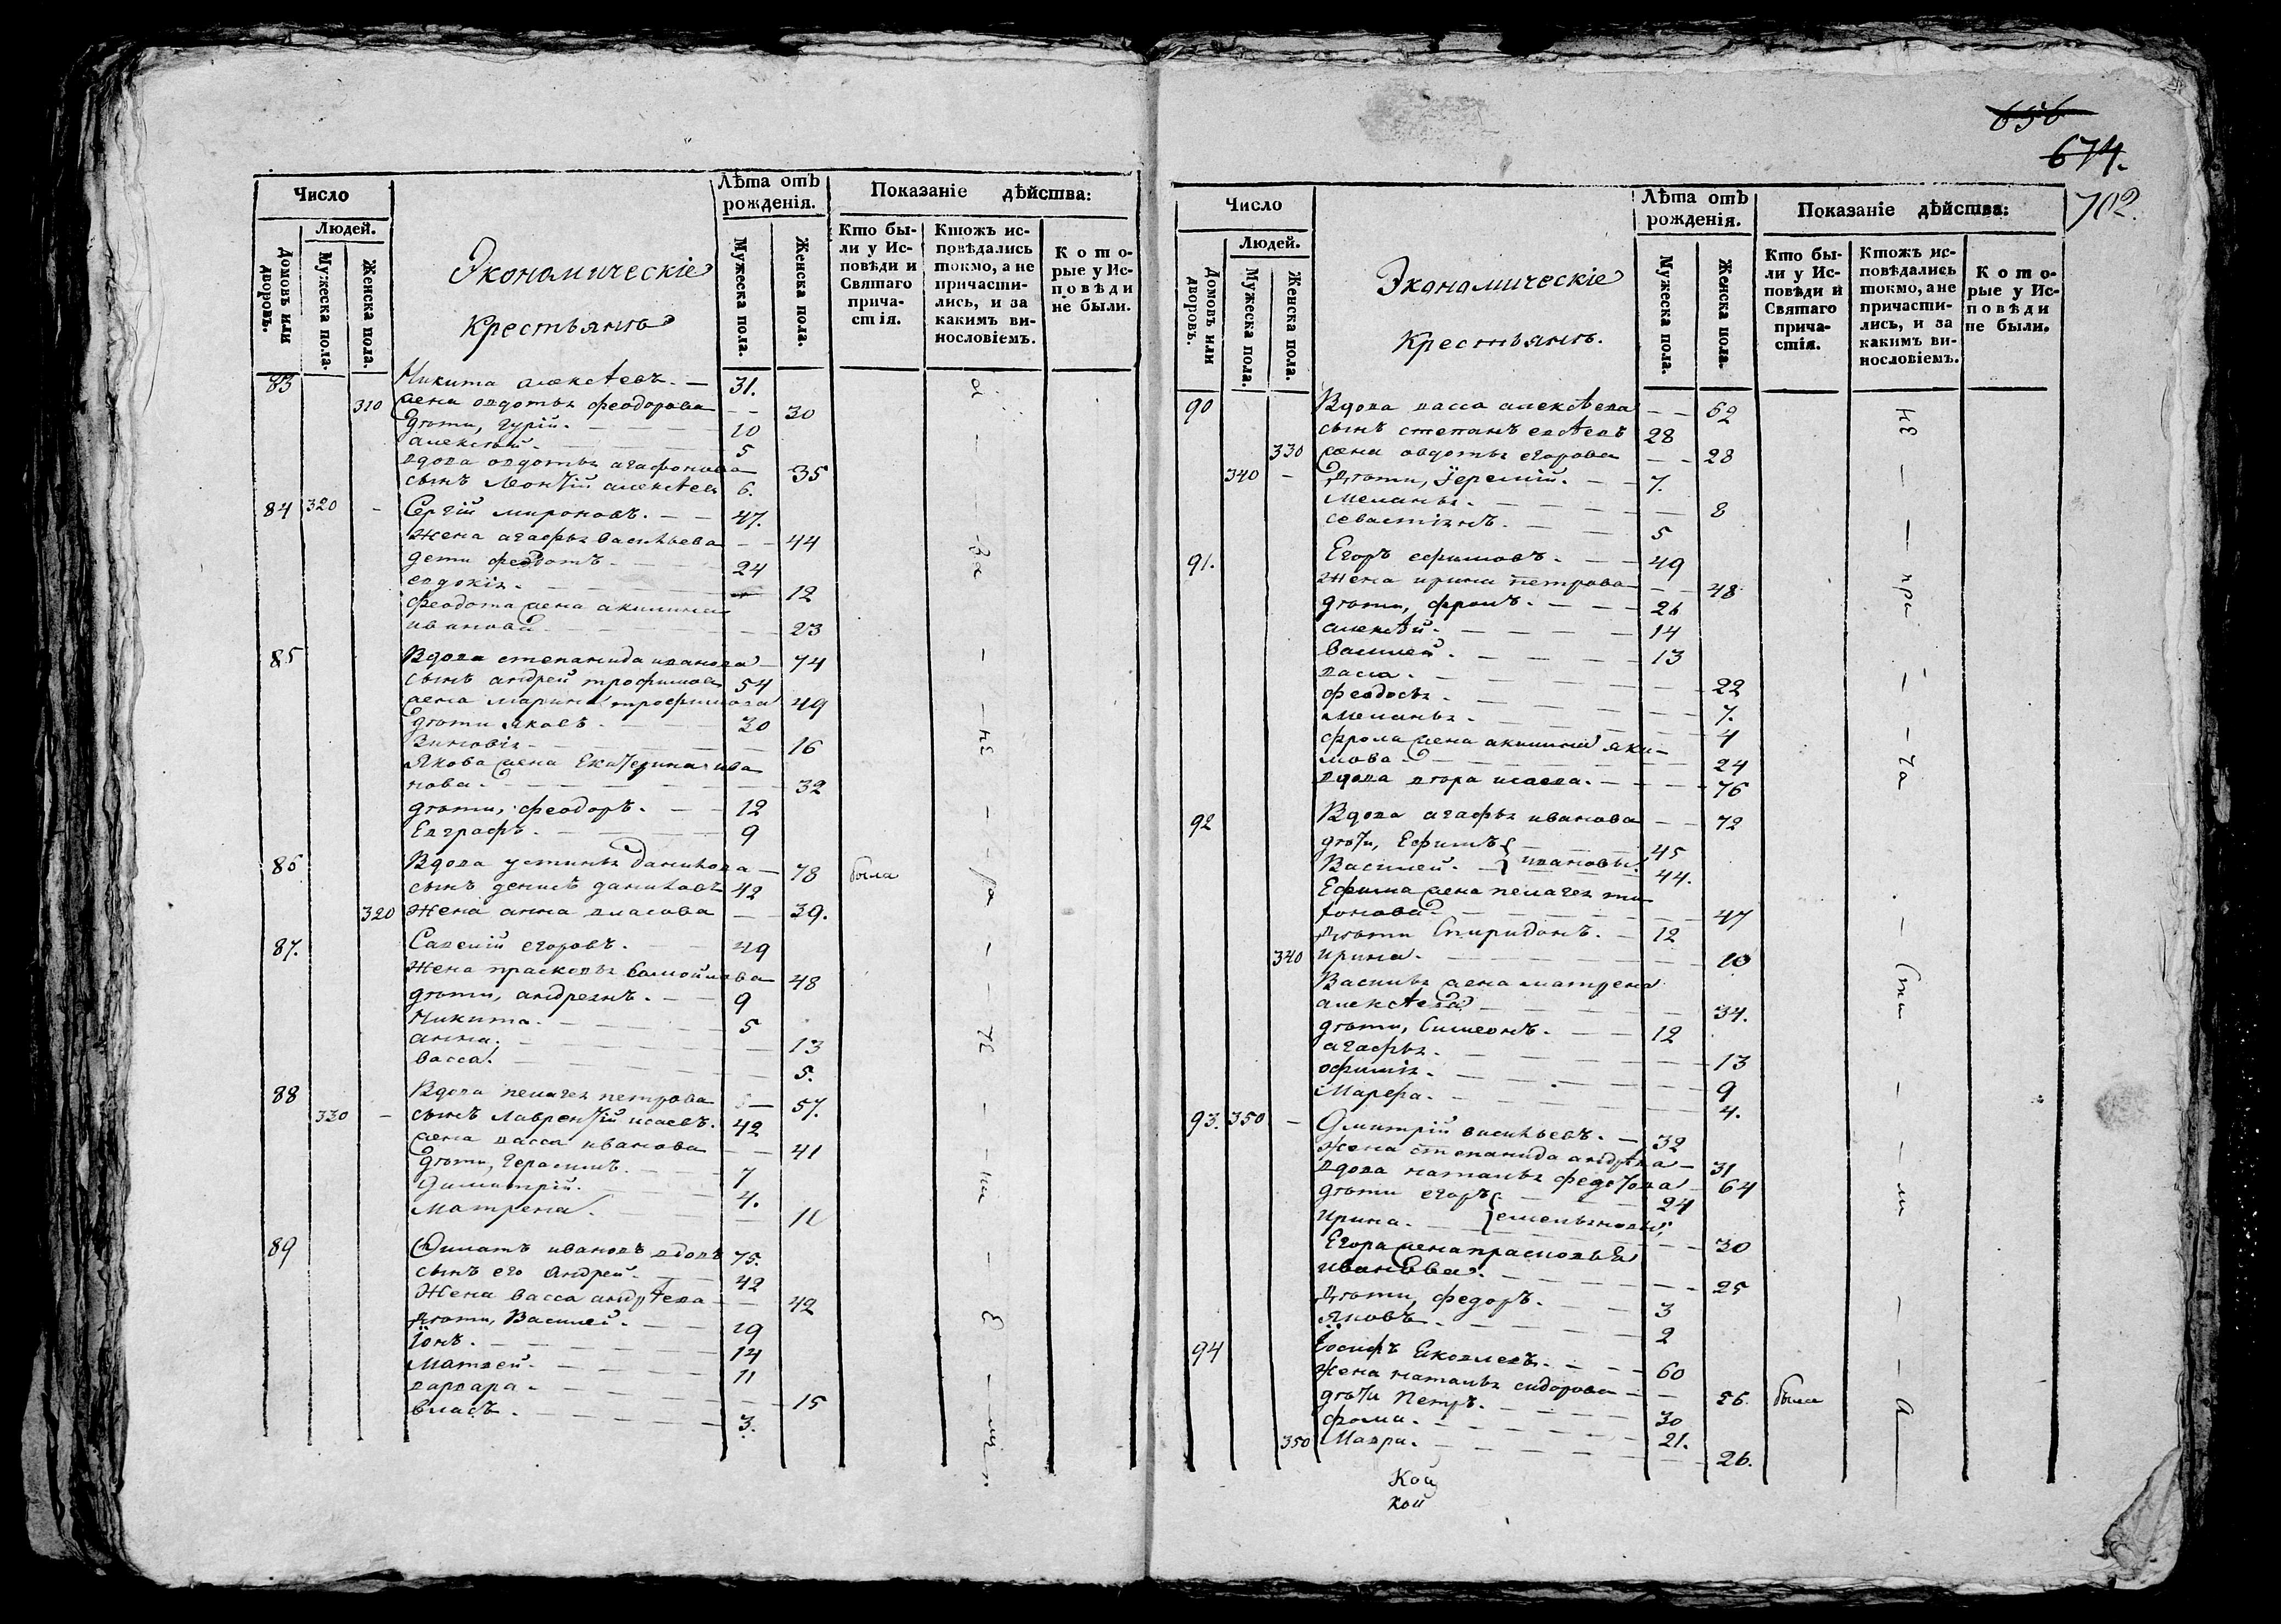 656
674.
702.
Число
Людей.
Домовъ или дворовъ.
Мужеска пола.
Женска пола.
Экономическіе
Крестьянѣ
Лѣта отъ рожденія.
Мужеска пола.
Женска пола.
Показаніе дѣйства:
Кто бы-
ли у Ис-
повѣди и
Святаго
прича-
стія.
Ктожъ ис-
повѣдались
токмо, а не
причасти-
лись, и за
какимъ ви-
нословіемъ.
Кото-
рые у Ис-
повѣди
не были.
83 Никита алексѣевъ. — 31.
310 жена овдотья феодорова — — 30
дѣти, гурій. — — — 10
алексѣй. — — — 5
вдова овдотья агафонова — 35
сынъ Леонтій алексѣев 6.
84 320 – Сергій мироновъ. — — 47.
Жена агафья васильева — — 44
дети феодотъ. — — — 24
евдокія. — — — 12
феодота жена акилина
иванова — — — 23
85 Вдова степанида иванова — 74
сынъ андрей трофимов 54
жена марина трофимова 49
дѣти яковъ. — — 30
Зиновія — — — 16
Якова жена Екатерина ива
нова. — — — 32
дѣти, феодоръ. — — 12
Евграфъ. — — — 9
85 Вдова устинья данилова — 78 была
сынъ денисъ даниловъ 42
320 Жена анна власова — — 39.
87. Савелій егоровъ. — — 49
Жена прасковья Самойлова 48
дѣти, андреянъ. — — 9
Никита. — — — 5
анна. — — — 13
васса. — — — 5.
88 Вдова пелагея петрова — 57.
330 – сынъ лаврентій исаевъ. 42
жена васса иванова — — 41
дѣти, Герасимъ. — — 7
Димитрій. — — — 4.
Матрена. — — — 11
89 Филатъ ивановъ вдовъ 75.
сынъ его Андрей. — — 42
Жена васса андрѣева — — 42
Дѣти, Василей. — — 19
Іонъ. — — — 14
Матвей. — — — 11
варвара. — — — 15
власъ. — — — 3.
Число
Людей.
Домовъ или дворовъ.
Мужеска пола.
Женска пола.
Экономическіе
Крестьянѣ.
Лѣта отъ рожденія.
Мужеска пола.
Женска пола.
Показаніе дѣйства:
Кто бы-
ли у Ис-
повѣди и
Святаго
прича-
стія.
Ктожъ ис-
повѣдались
токмо, а не
причасти-
лись, и за
какимъ ви-
нословіемъ.
Кото-
рые у Ис-
повѣди
не были.
90 Вдова васса алексѣева — — 62
сынъ степанъ 28
330 жена овдотья егорова — — 28
340 – Дѣти, Іеремій. — — 7.
Меланья. — — — 8
севастіянъ. — — — 5
91. Егоръ ефимовъ. — — 49
Жена ирина петрова — — 48
дѣти, фролъ. — — — 26
алексѣй. — — — 14
Василей. — — — 13
васса. — — — 22
феодосья. — — — 7.
Меланья. — — — 4
фрола жена акилина яки-
мова. — — — 24
вдова исаева. — — — 76
92 Вдова агафья иванова — — 72
дѣти, Ефимъ { — — 45
Василей. — } ивановы. 44.
Ефима жена пелагея ти
хонова — — — 47
Дѣти Спиридонъ. — 12
340 ирина. — — — 10
Василья жена матрена
алексѣева — — — 34.
дѣти, Симеонъ. — — 12
агафья. — — — 13
офимія. — — — 9
Марфа. — — — 4.
93. 350 – Дмитрій васильевъ. — 32
Жена степанида андрѣева — 31
вдова наталья федотова — 64
дѣти егоръ { — — 24
ирина. — } емельяновы,
30
Егора жена прасковья
иванова. — — — 25
Дѣти, федоръ. — — 3
Яковъ. — — — 2
94 Іосифъ Яковлевъ. — — 60
Жена наталья сидорова — — 56. была
дѣти Петръ. — — — 30
фома. — — — 21.
350 Мавра. — — — 26.
Кой
кой